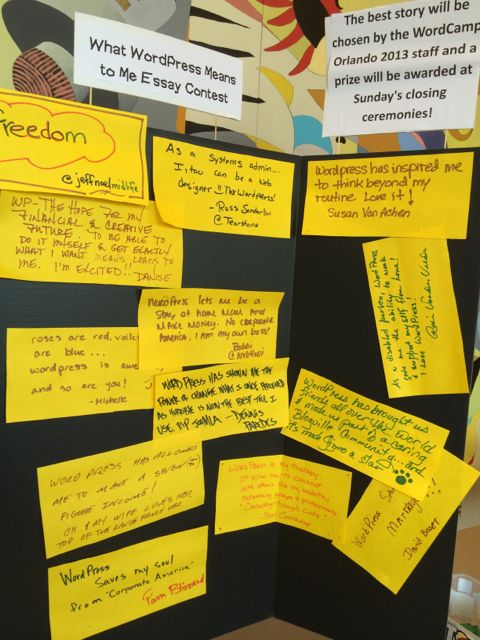 What WordPress Means
to Me Essay Contest
The best story will be
chosen by the WordCamp
Orlando 2013 staff and a
prize will be awarded at
Sunday's closing
ceremonies!
Freedom
@jeffnoelmidlife
As a Systems admin...
I, too can be a web
designer!! The WordPress!
- Russ
@Tearstone
WordPress has inspired me
to think beyond my
routine. Love it!
Susan Von Achen
WP - THE HOPE FOR MY
FINANCIAL & CREATIVE
FUTURE. TO BE ABLE TO
DO IT MYSELF & GET EXACTLY
WHAT I WANT MEANS LOADS TO
ME. I'M EXCITED!! DANISE
disabled person, WordPress
gave me the ability to work
& support myself from home!
I love WordPress!
WordPress lets me be a
Stay at home Mom and
Make Money. No Corporate
America. I am my own boss!
Bobbi
roses are red, voilets
are blue...
wordpress is awe
and so are you!
- Michelle
WORD PRESS HAS SHOWN ME THE
POWER OF CHANGE. WHAT I ONCE PERCEIVED
AS HORRIBLE IS NOW THE BEST TOOL I
USE. RIP JOOMLA - DENNIS
PAREDES
WordPress has brought us
friends all over the World
& made us part of a caring
Blogville Community.. and
its made Gizmo a star
WORD PRESS HAS ALLOWED
ME TO MAKE A SEVEN
FIGURE INCOME!
OH & MY WIFE LOVES HER
TOP OF THE RANGE FANCY CAR
WordPress is my therapy.
It allows me to connect
with others like my website,
networking groups & professionals
"Connecting Through Code"
WordPress
David
WordPress
Saves my soul
from "Corporate America"
Pam Blizzard